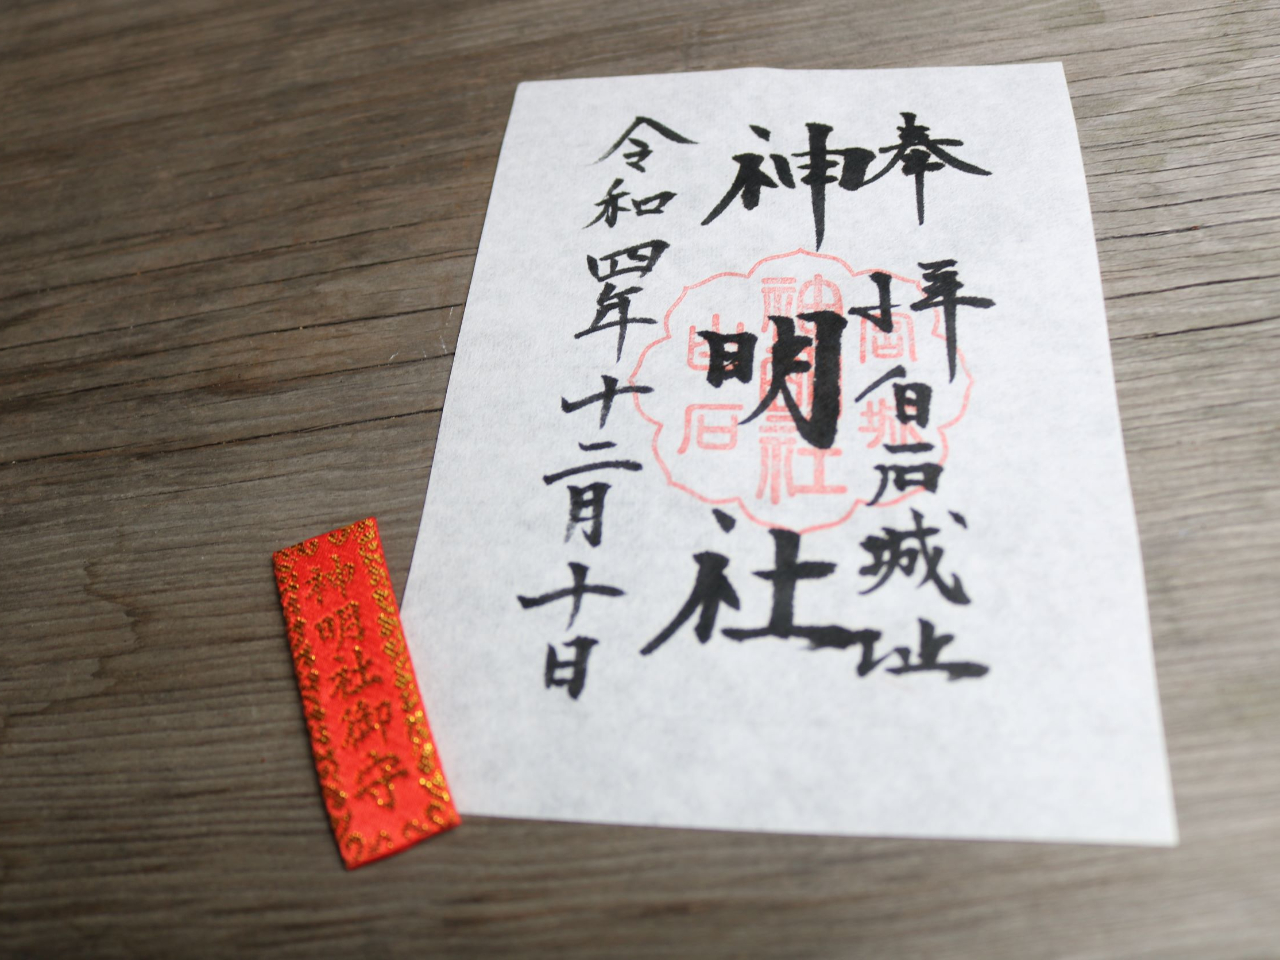 奉拝 白石城址
神明社
令和四年十二月十日
宮城
神明社
白石
神明社御守